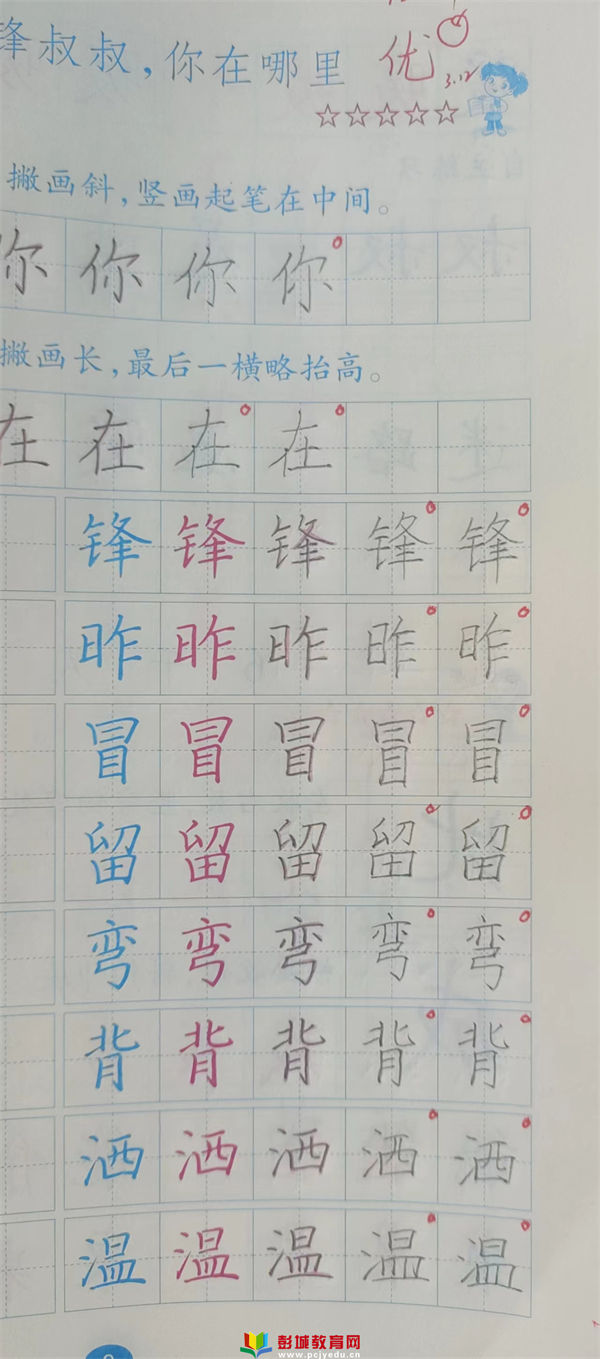 锋叔叔，你在哪里
优
3.12
☆☆☆☆☆
撇画斜，竖画起笔在中间。
你 你 你 你
撇画长，最后一横略抬高。
在 在 在 在
锋 锋 锋 锋 锋
昨 昨 昨 昨 昨
冒 冒 冒 冒 冒
留 留 留 留 留
弯 弯 弯 弯 弯
背 背 背 背 背
洒 洒 洒 洒 洒
温 温 温 温 温
彭城教育网
www.pcjyedu.cn